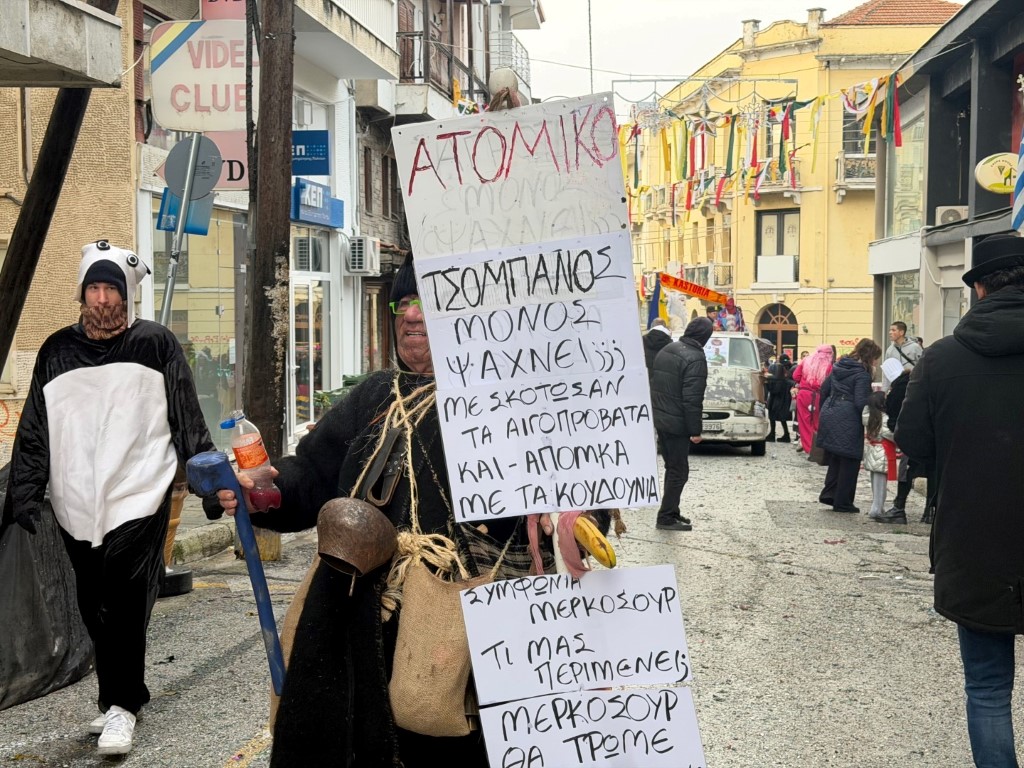 VIDEO
CLUB
VD
ΚΕΠ
ΑΤΟΜΙΚΟ
ΜΟΝΟΣ
ΨΑΧΝΕΙ;;;
ΤΣΟΜΠΑΝΟΣ
ΜΟΝΟΣ
ΨΑΧΝΕΙ;;;
ΜΕ ΣΚΟΤΩΣΑΝ
ΤΑ ΑΙΓΟΠΡΟΒΑΤΑ
ΚΑΙ-ΑΠΟΜΚΑ
ΜΕ ΤΑ ΚΟΥΔΟΥΝΙΑ
ΣΥΜΦΩΝΙΑ
ΜΕΡΚΟΣΟΥΡ
ΤΙ ΜΑΣ
ΠΕΡΙΜΕΝΕΙ;
ΜΕΡΚΟΣΟΥΡ
ΘΑ ΤΡΩΜΕ
KASTORIA